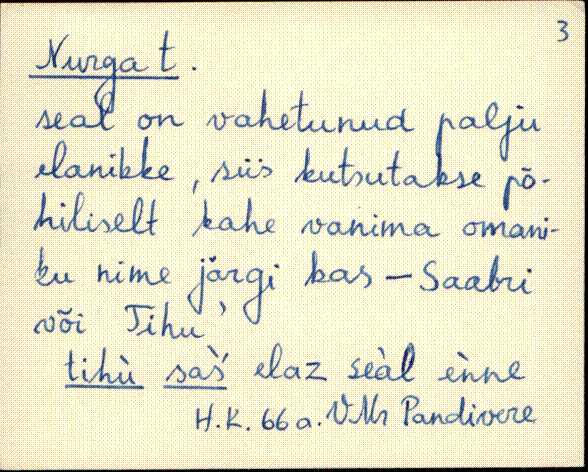 3
Nurga t.
seal on vahetunud palju
elanikke, siis kutsutakse põ-
hiliselt kahe vanima omani-
ku nime järgi kas – Saabri
või Tihu'
tihù sàs' elaz seàl ènne
H.K. 66 a. VMr Pandivere